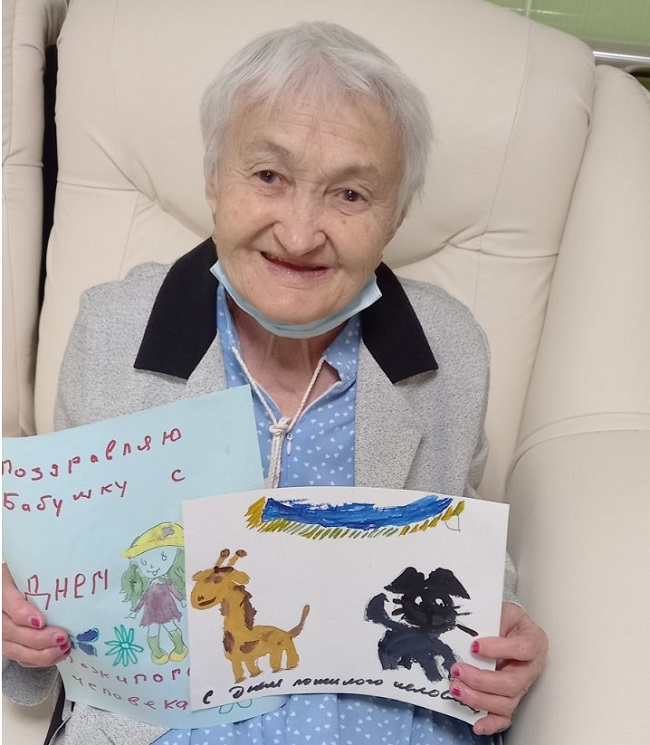 Поздравляю
Бабушку с
Днем
Пожилого
человека
с Днем пожилого человека